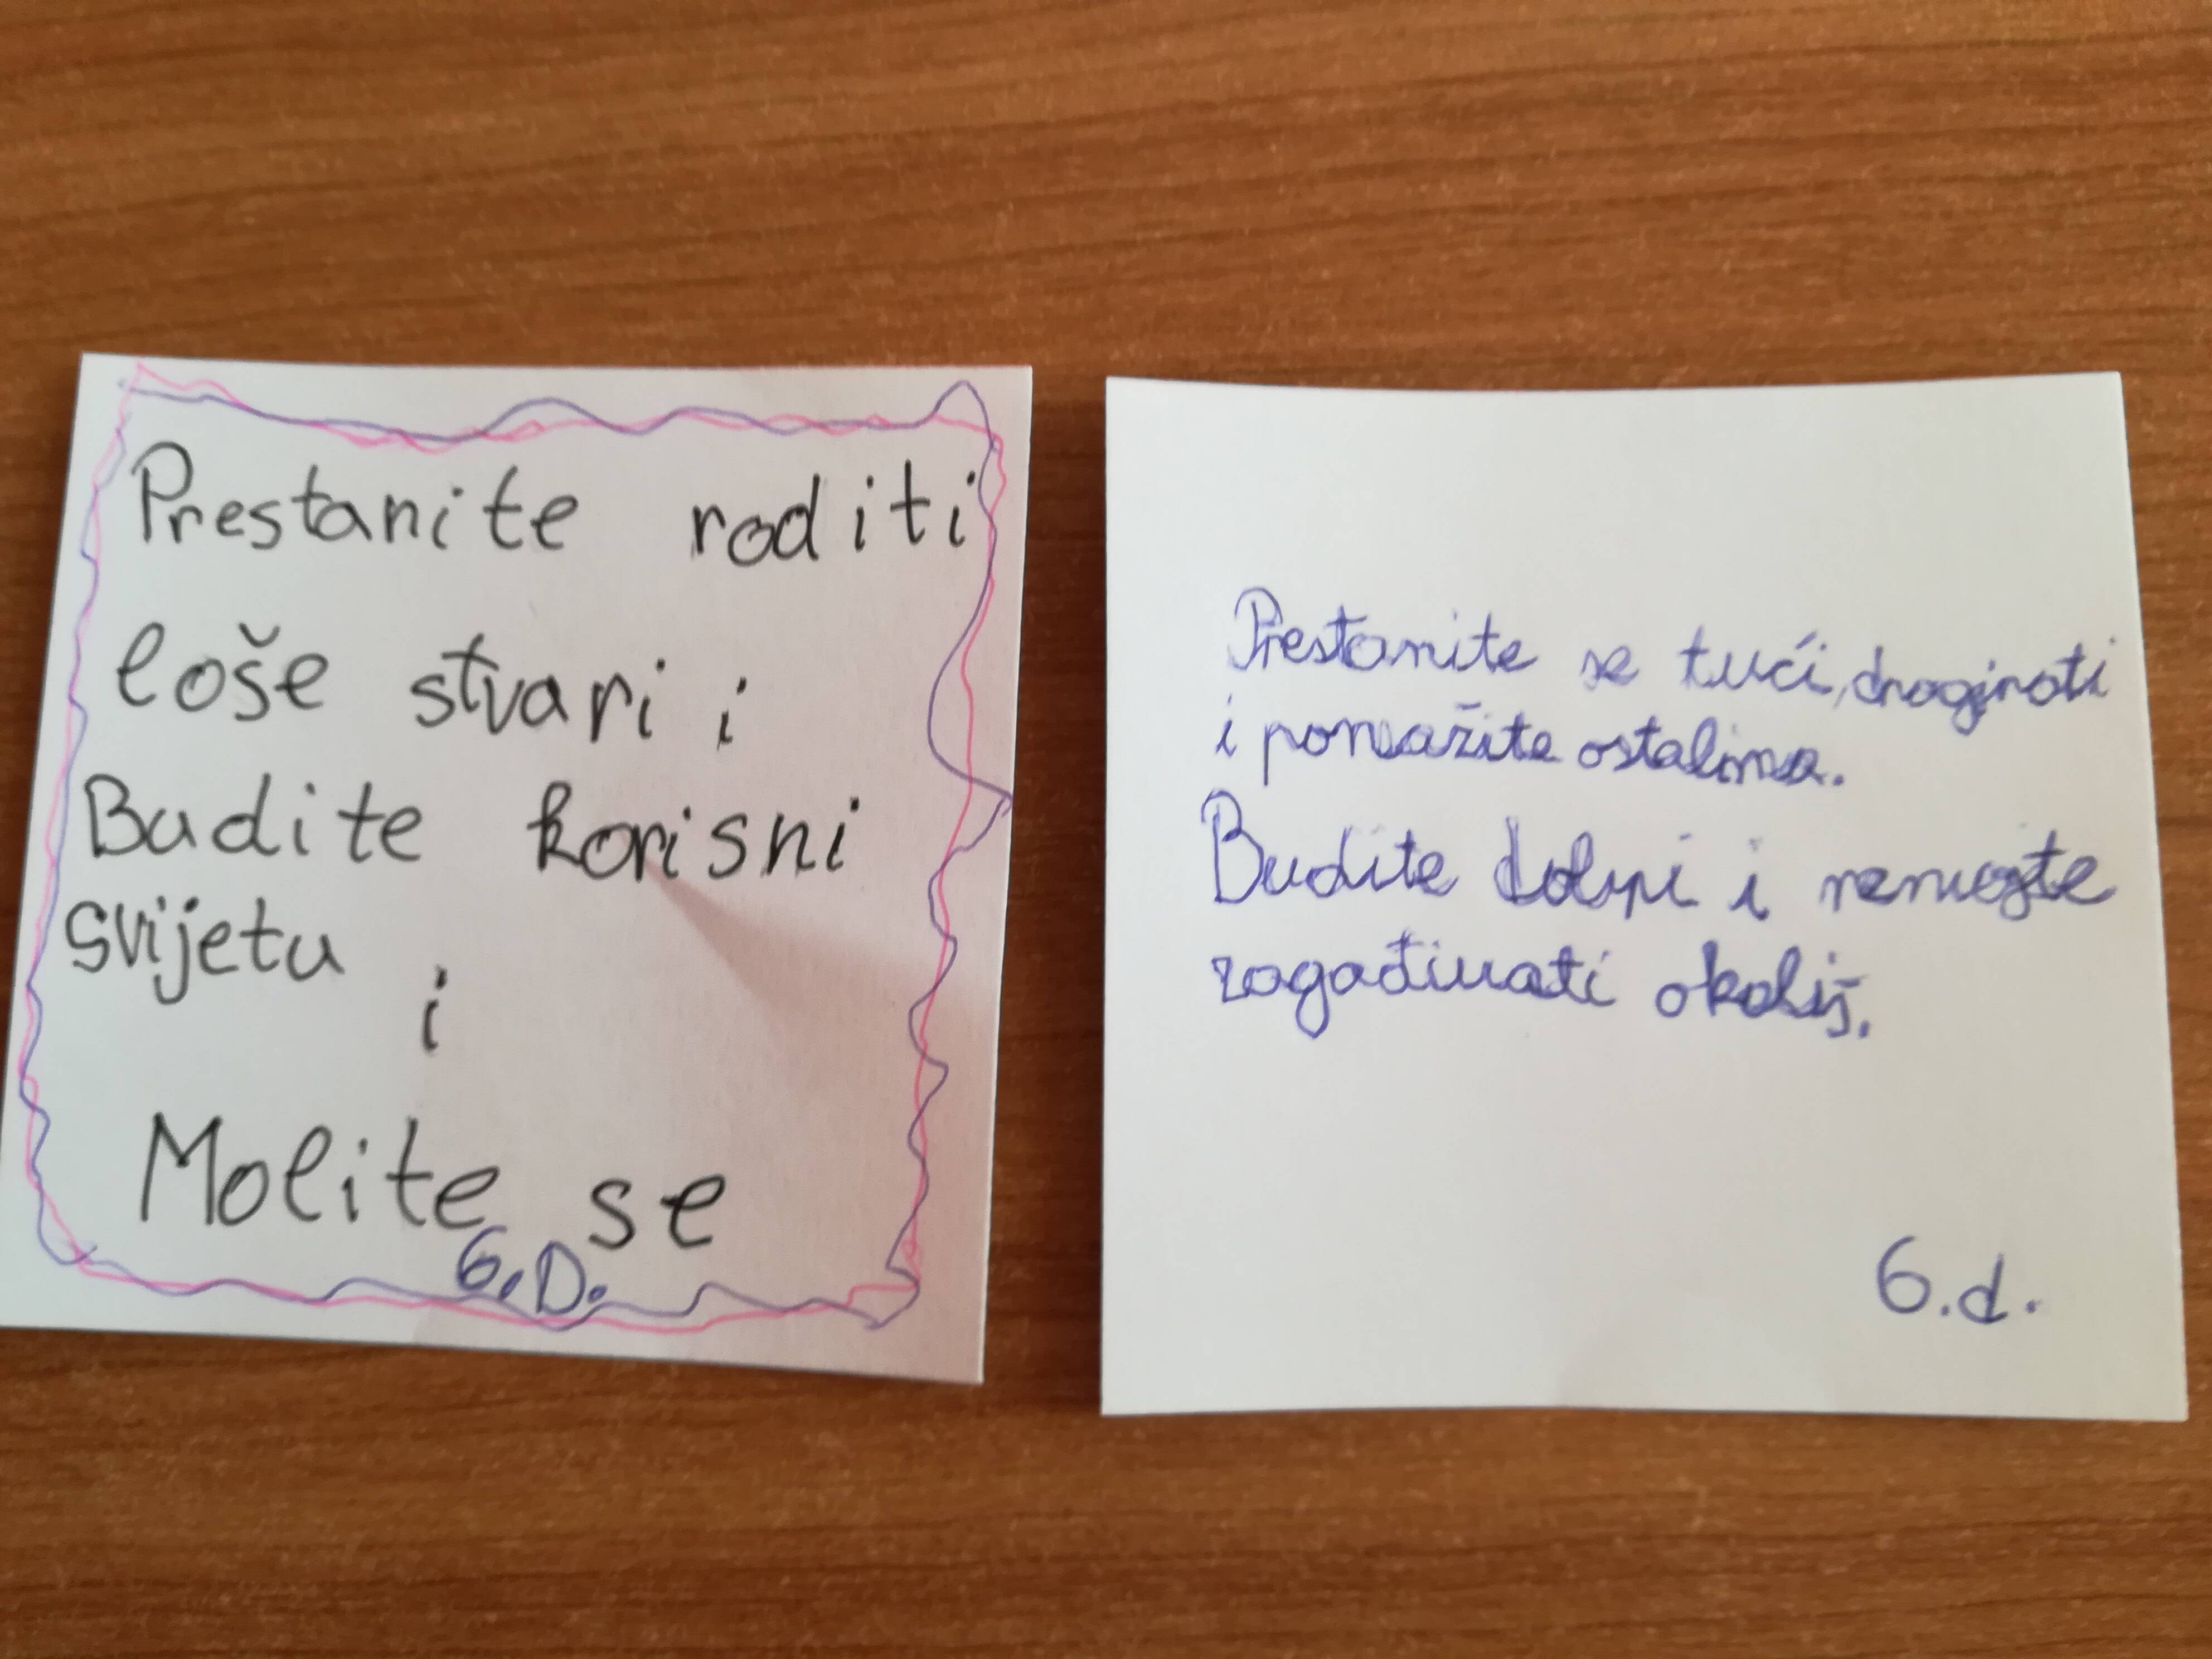 Prestanite roditi
loše stvari i
Budite korisni
svijetu
i
Molite se
6.D.
Prestanite se tući, drogirati
i pomažite ostalima.
Budite dobri i nemojte
zagađivati okoliš.
6.d.